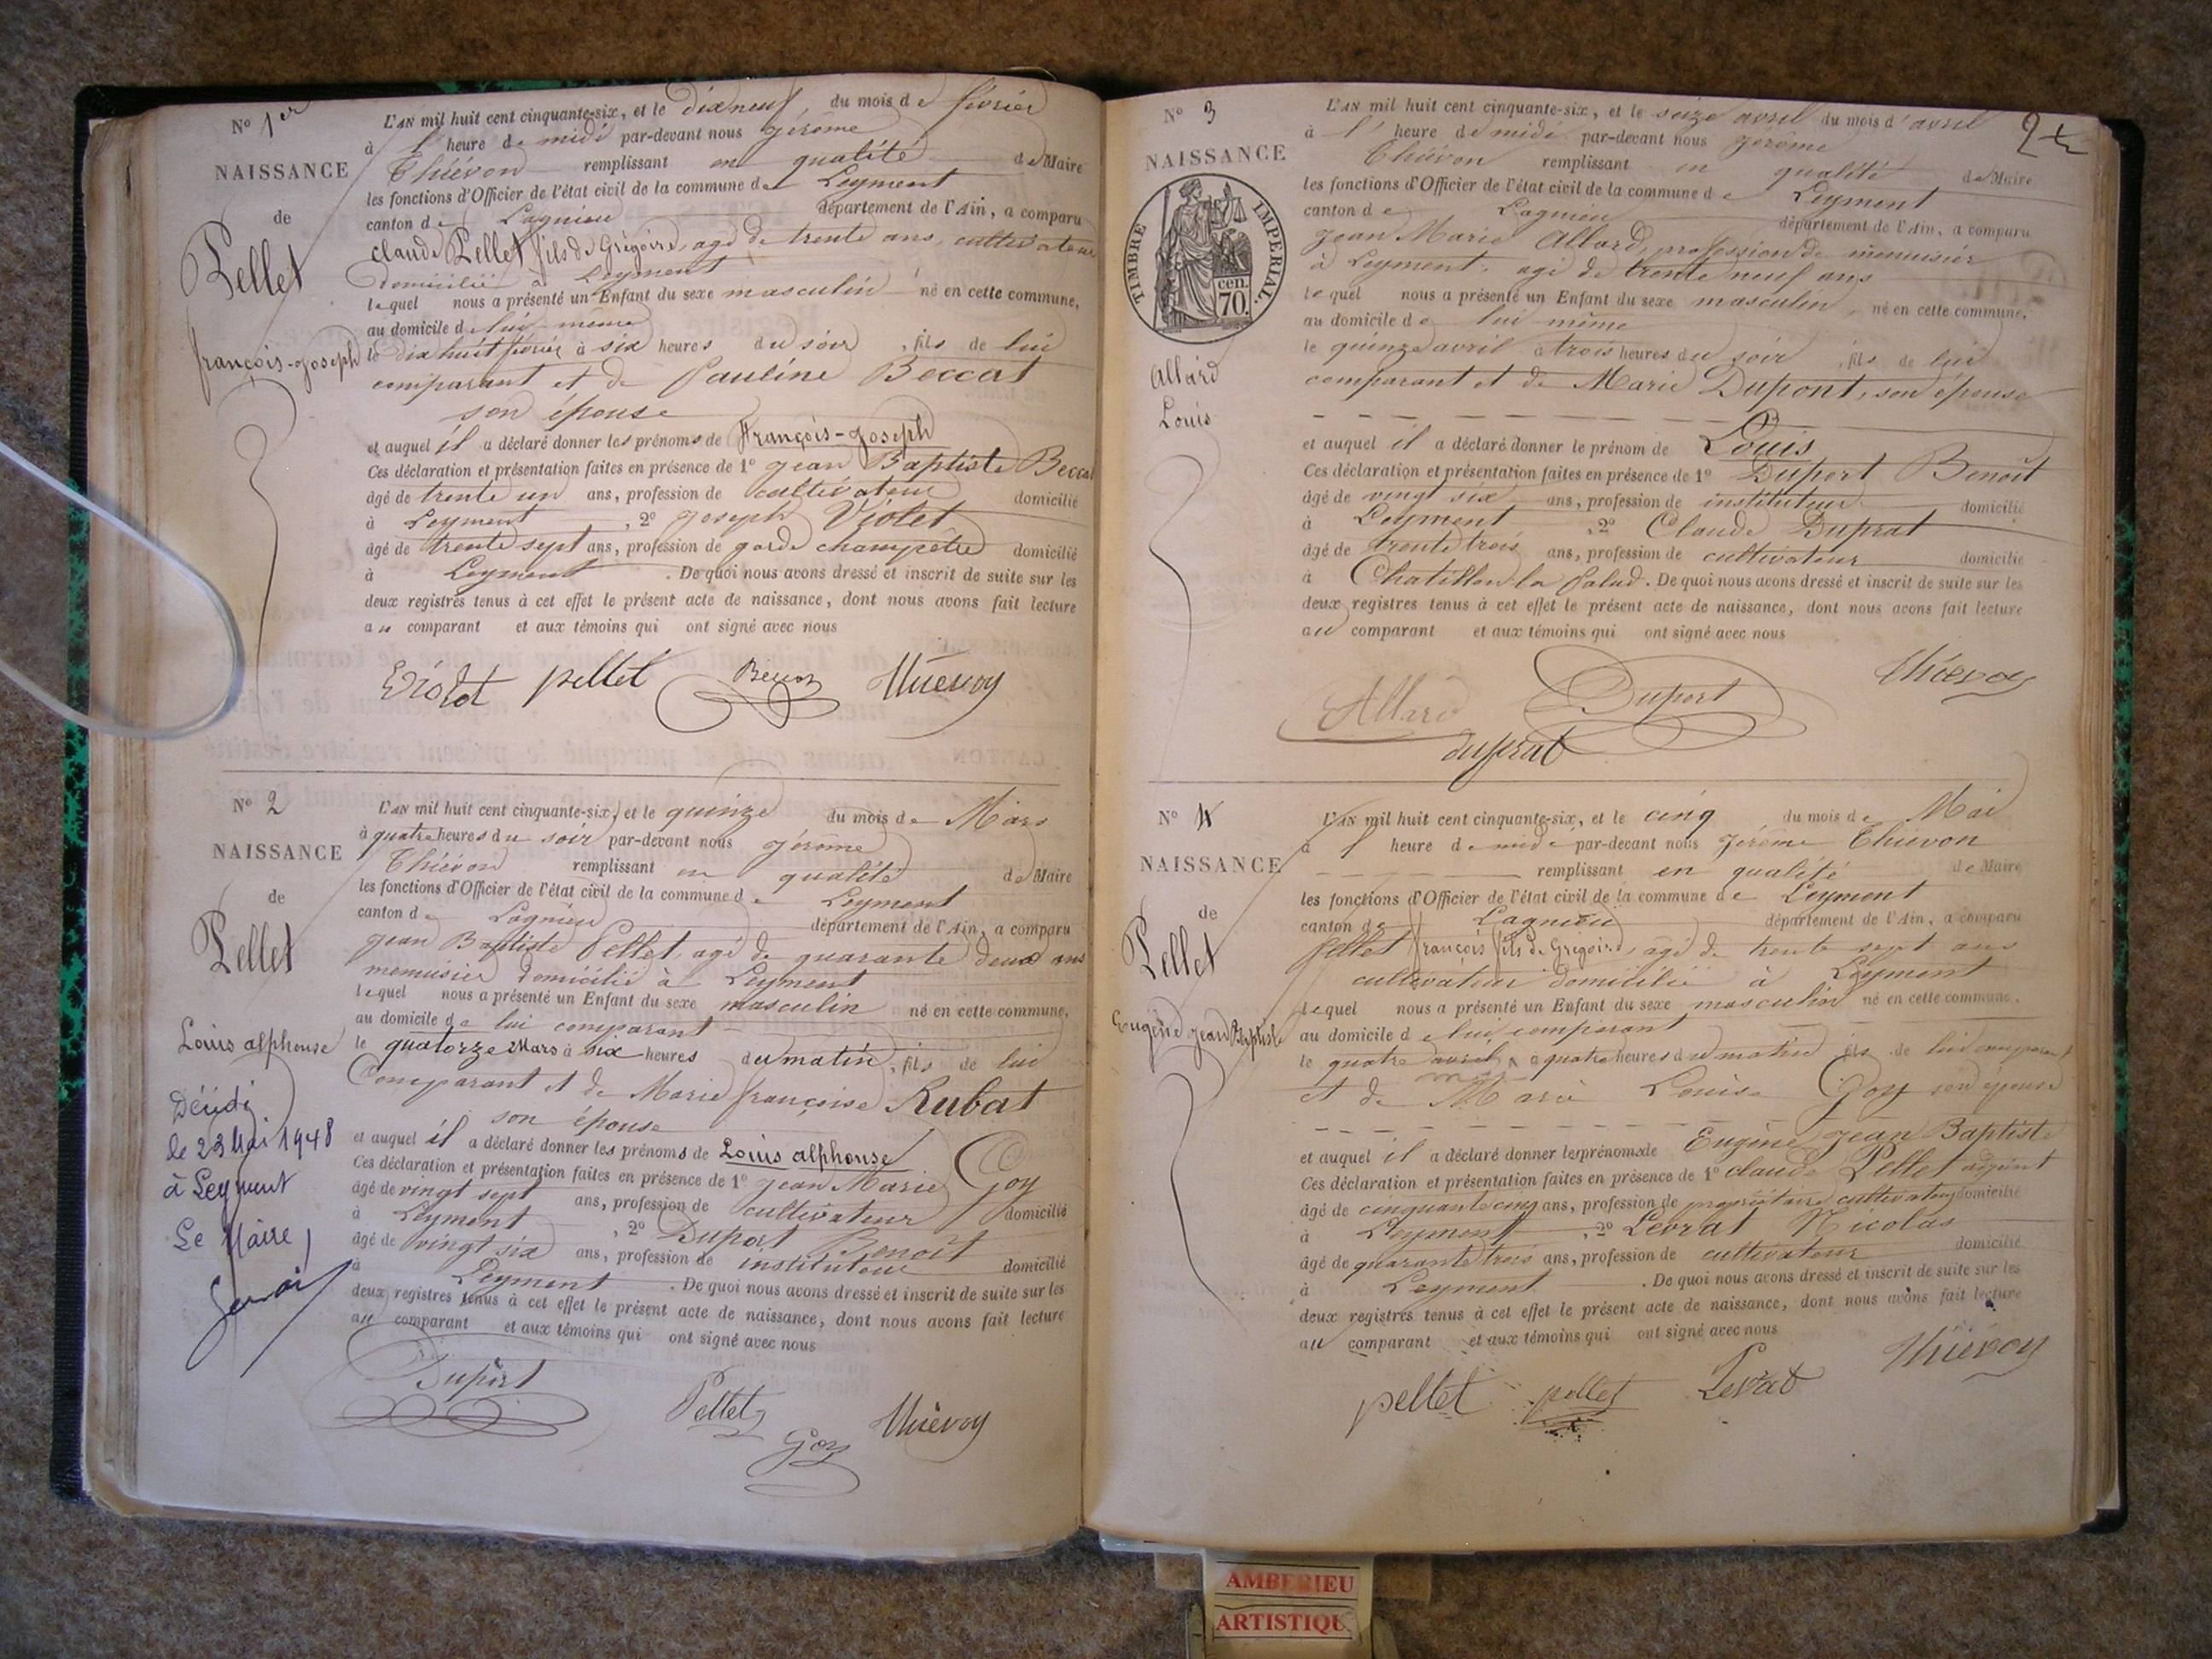 N° 1er
NAISSANCE
de
Pellet
françois-joseph
L'AN mil huit cent cinquante-six, et le dixneuf, du mois de février
à l' heure de midi par-devant nous jérôme
Thiévon remplissant en qualité de Maire
les fonctions d'Officier de l'état civil de la commune de Leyment
canton de Lagnieu département de l'Ain, a comparu
claude Pellet fils de Grégoire, agé de trente ans, cultivateur
domicilié à Leyment
lequel nous a présenté un Enfant du sexe masculin né en cette commune,
au domicile de lui-même
le dix huit février à six heures du soir, fils de lui
comparant et de Pauline Beccat
son épouse
et auquel il a déclaré donner les prénoms de François-joseph
Ces déclaration et présentation faites en présence de 1° jean Baptiste Beccat
âgé de trente un ans, profession de cultivateur domicilié
à Leyment, 2° joseph Violet
âgé de trente sept ans, profession de garde champêtre domicilié
à Leyment. De quoi nous avons dressé et inscrit de suite sur les
deux registres tenus à cet effet le présent acte de naissance, dont nous avons fait lecture
au comparant et aux témoins qui ont signé avec nous
Violet pellet Thiévon
N° 2
NAISSANCE
de
Pellet
Louis alphonse
Décédé
le 23 Mai 1948
à Leyment
Le Maire,
L'AN mil huit cent cinquante-six, et le quinze du mois de Mars
à quatre heures du soir par-devant nous jérôme
Thiévon remplissant en qualité de Maire
les fonctions d'Officier de l'état civil de la commune de Leyment
canton de Lagnieu département de l'Ain, a comparu
jean Baptiste Pellet, agé de quarante deux ans
menuisier domicilié à Leyment
lequel nous a présenté un Enfant du sexe masculin né en cette commune,
au domicile de lui comparant
le quatorze Mars à six heures du matin, fils de lui
Comparant et de Marie françoise Rubat
son épouse
et auquel il a déclaré donner les prénoms de Louis alphonse
Ces déclaration et présentation faites en présence de 1° jean Marie Goy
âgé de vingt sept ans, profession de cultivateur domicilié
à Leyment, 2° Duport Benoît
âgé de vingt six ans, profession de instituteur domicilié
à Leyment. De quoi nous avons dressé et inscrit de suite sur les
deux registres tenus à cet effet le présent acte de naissance, dont nous avons fait lecture
au comparant et aux témoins qui ont signé avec nous
Duport Pellet Goy Thiévon
2
N° 3
NAISSANCE
TIMBRE IMPERIAL.
70. cen.
Allard
Louis
L'AN mil huit cent cinquante-six, et le seize avril du mois d'avril
à l' heure de midi par-devant nous jérôme
Thiévon remplissant en qualité de Maire
les fonctions d'Officier de l'état civil de la commune de Leyment
canton de Lagnieu département de l'Ain, a comparu
jean Marie Allard, profession de menuisier
à Leyment, agé de trente neuf ans
lequel nous a présenté un Enfant du sexe masculin, né en cette commune,
au domicile de lui même
le quinze avril à trois heures du soir, fils de lui
comparant et de Marie Dupont, son épouse
et auquel il a déclaré donner le prénom de Louis
Ces déclaration et présentation faites en présence de 1° Duport Benoît
âgé de vingt six ans, profession de instituteur domicilié
à Leyment, 2° Claude Duprat
âgé de trente trois ans, profession de cultivateur domicilié
à Chatillon la Palud. De quoi nous avons dressé et inscrit de suite sur les
deux registres tenus à cet effet le présent acte de naissance, dont nous avons fait lecture
au comparant et aux témoins qui ont signé avec nous
Allard Duport Thiévon
duprat
N° 4
NAISSANCE
de
Pellet
Eugène jean Baptiste
L'AN mil huit cent cinquante-six, et le cinq du mois de Mai
à l' heure de midi par-devant nous jérôme Thiévon
remplissant en qualité de Maire
les fonctions d'Officier de l'état civil de la commune de Leyment
canton de Lagnieu département de l'Ain, a comparu
Pellet françois fils de Grégoire, agé de trente sept ans
cultivateur domicilié à Leyment
lequel nous a présenté un Enfant du sexe masculin né en cette commune,
au domicile de lui comparant
le quatre avril à quatre heures du matin fils de lui comparant
mai
et de Marie Louise Goy son épouse
et auquel il a déclaré donner les prénoms de Eugène jean Baptiste
Ces déclaration et présentation faites en présence de 1° claude Pellet adjoint
âgé de cinquante cinq ans, profession de propriétaire cultivateur domicilié
à Leyment, 2° Levrat Nicolas
âgé de quarante trois ans, profession de cultivateur domicilié
à Leyment. De quoi nous avons dressé et inscrit de suite sur les
deux registres tenus à cet effet le présent acte de naissance, dont nous avons fait lecture
au comparant et aux témoins qui ont signé avec nous
pellet pellet Levrat Thiévon
AMBERIEU
ARTISTIQUE